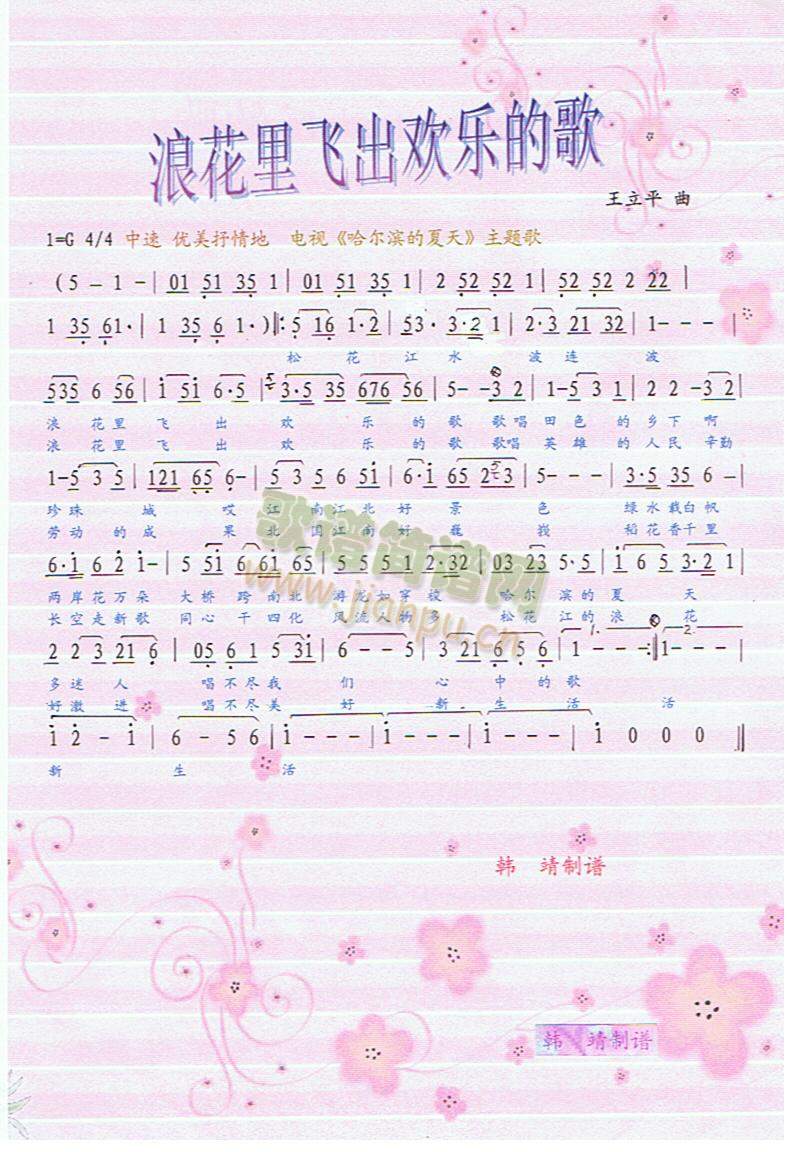 浪花里飞出欢乐的歌
王立平 曲
1=G 4/4 中速 优美抒情地 电视《哈尔滨的夏天》主题歌
(5 - 1 - | 01 51 35 1 | 01 51 35 1 | 2 52 52 1 | 52 52 2 22 |
1 35 61· | 1 35 6 1· )‖: 5 16 1·2 | 53· 3·2 1 | 2·3 21 32 | 1 - - - |
松 花 江 水 波 连 波
535 6 56 | 1 51 6·5 | 3·5 35 676 56 | 5 - - 3 2 | 1 - 5 3 1 | 2 2 - 3 2 |
浪 花 里 飞 出 欢 乐 的 歌 歌唱 田 色 的 乡 下 啊
浪 花 里 飞 出 欢 乐 的 歌 歌唱 英 雄 的 人 民 辛勤
1 - 5 3 5 | 121 65 6 - | 5 3 5 6 51 | 6·1 65 253 | 5 - - - | 3·5 35 6 - |
珍 珠 城 哎 江 南江 北 好 景 色 绿水 载白 帆
劳 动 的 成 果 北 国江 南 好 巍 巍 稻花 香千 里
6·1 62 1 - | 5 51 6 61 | 65 65 5 - | 5 5 5 1 2·32 | 03 23 5·5 | 1 6 5 3·2 1 |
两 岸 花 万 朵 大 桥 跨 南 北 游 龙 如 穿 梭 哈 尔 滨 的 夏 天
长 空 走 新 歌 同 心 干 四 化 风 流 人 物 多 松 花 江 的 浪 花
2 2 3 21 6 | 05 6 1 5 31 | 6 - - 5 | 3 21 6 5 6 | 1 - - - :‖ 1 - - - |
1.
2.
多 迷 人 唱 不 尽 我 们 心 中 的 歌
好 激 进 唱 不 尽 美 好 新 生 活 活
1 2 - 1 | 6 - 5 6 | 1 - - - | 1 - - - | 1 - - - | 1 0 0 0 ‖
新 生 活
歌谱简谱网
www.jianpu.cn
韩 靖制谱
韩 靖制谱